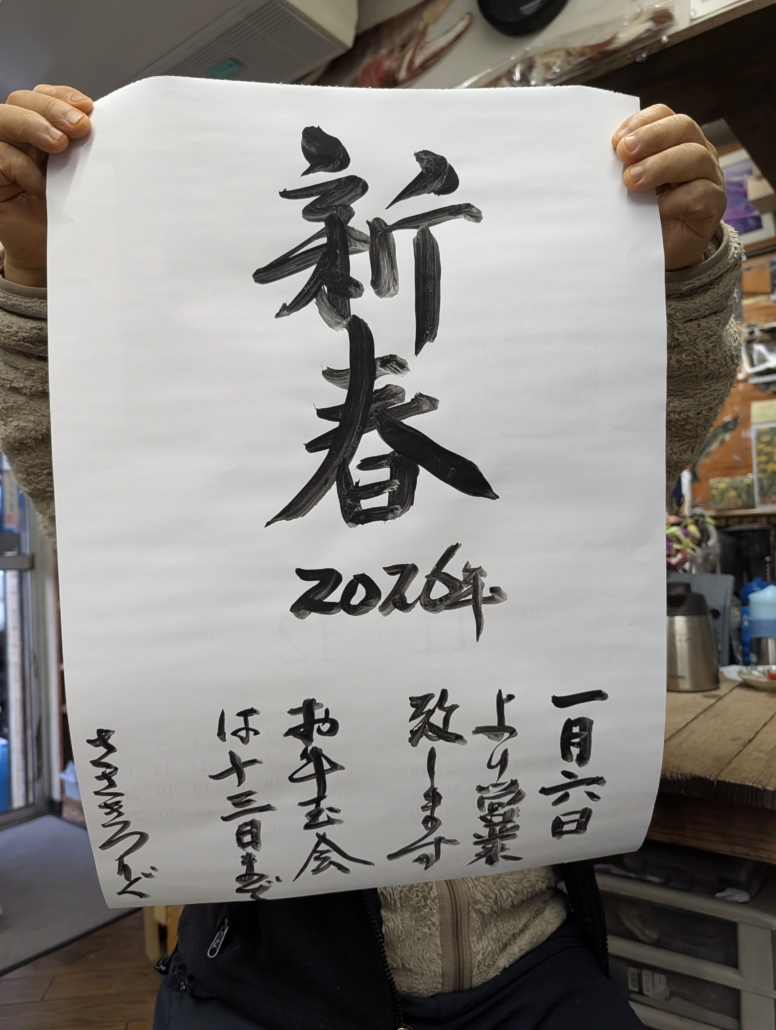 新春
2026年
一月六日
より営業
致します
お年玉会
は十三日まで